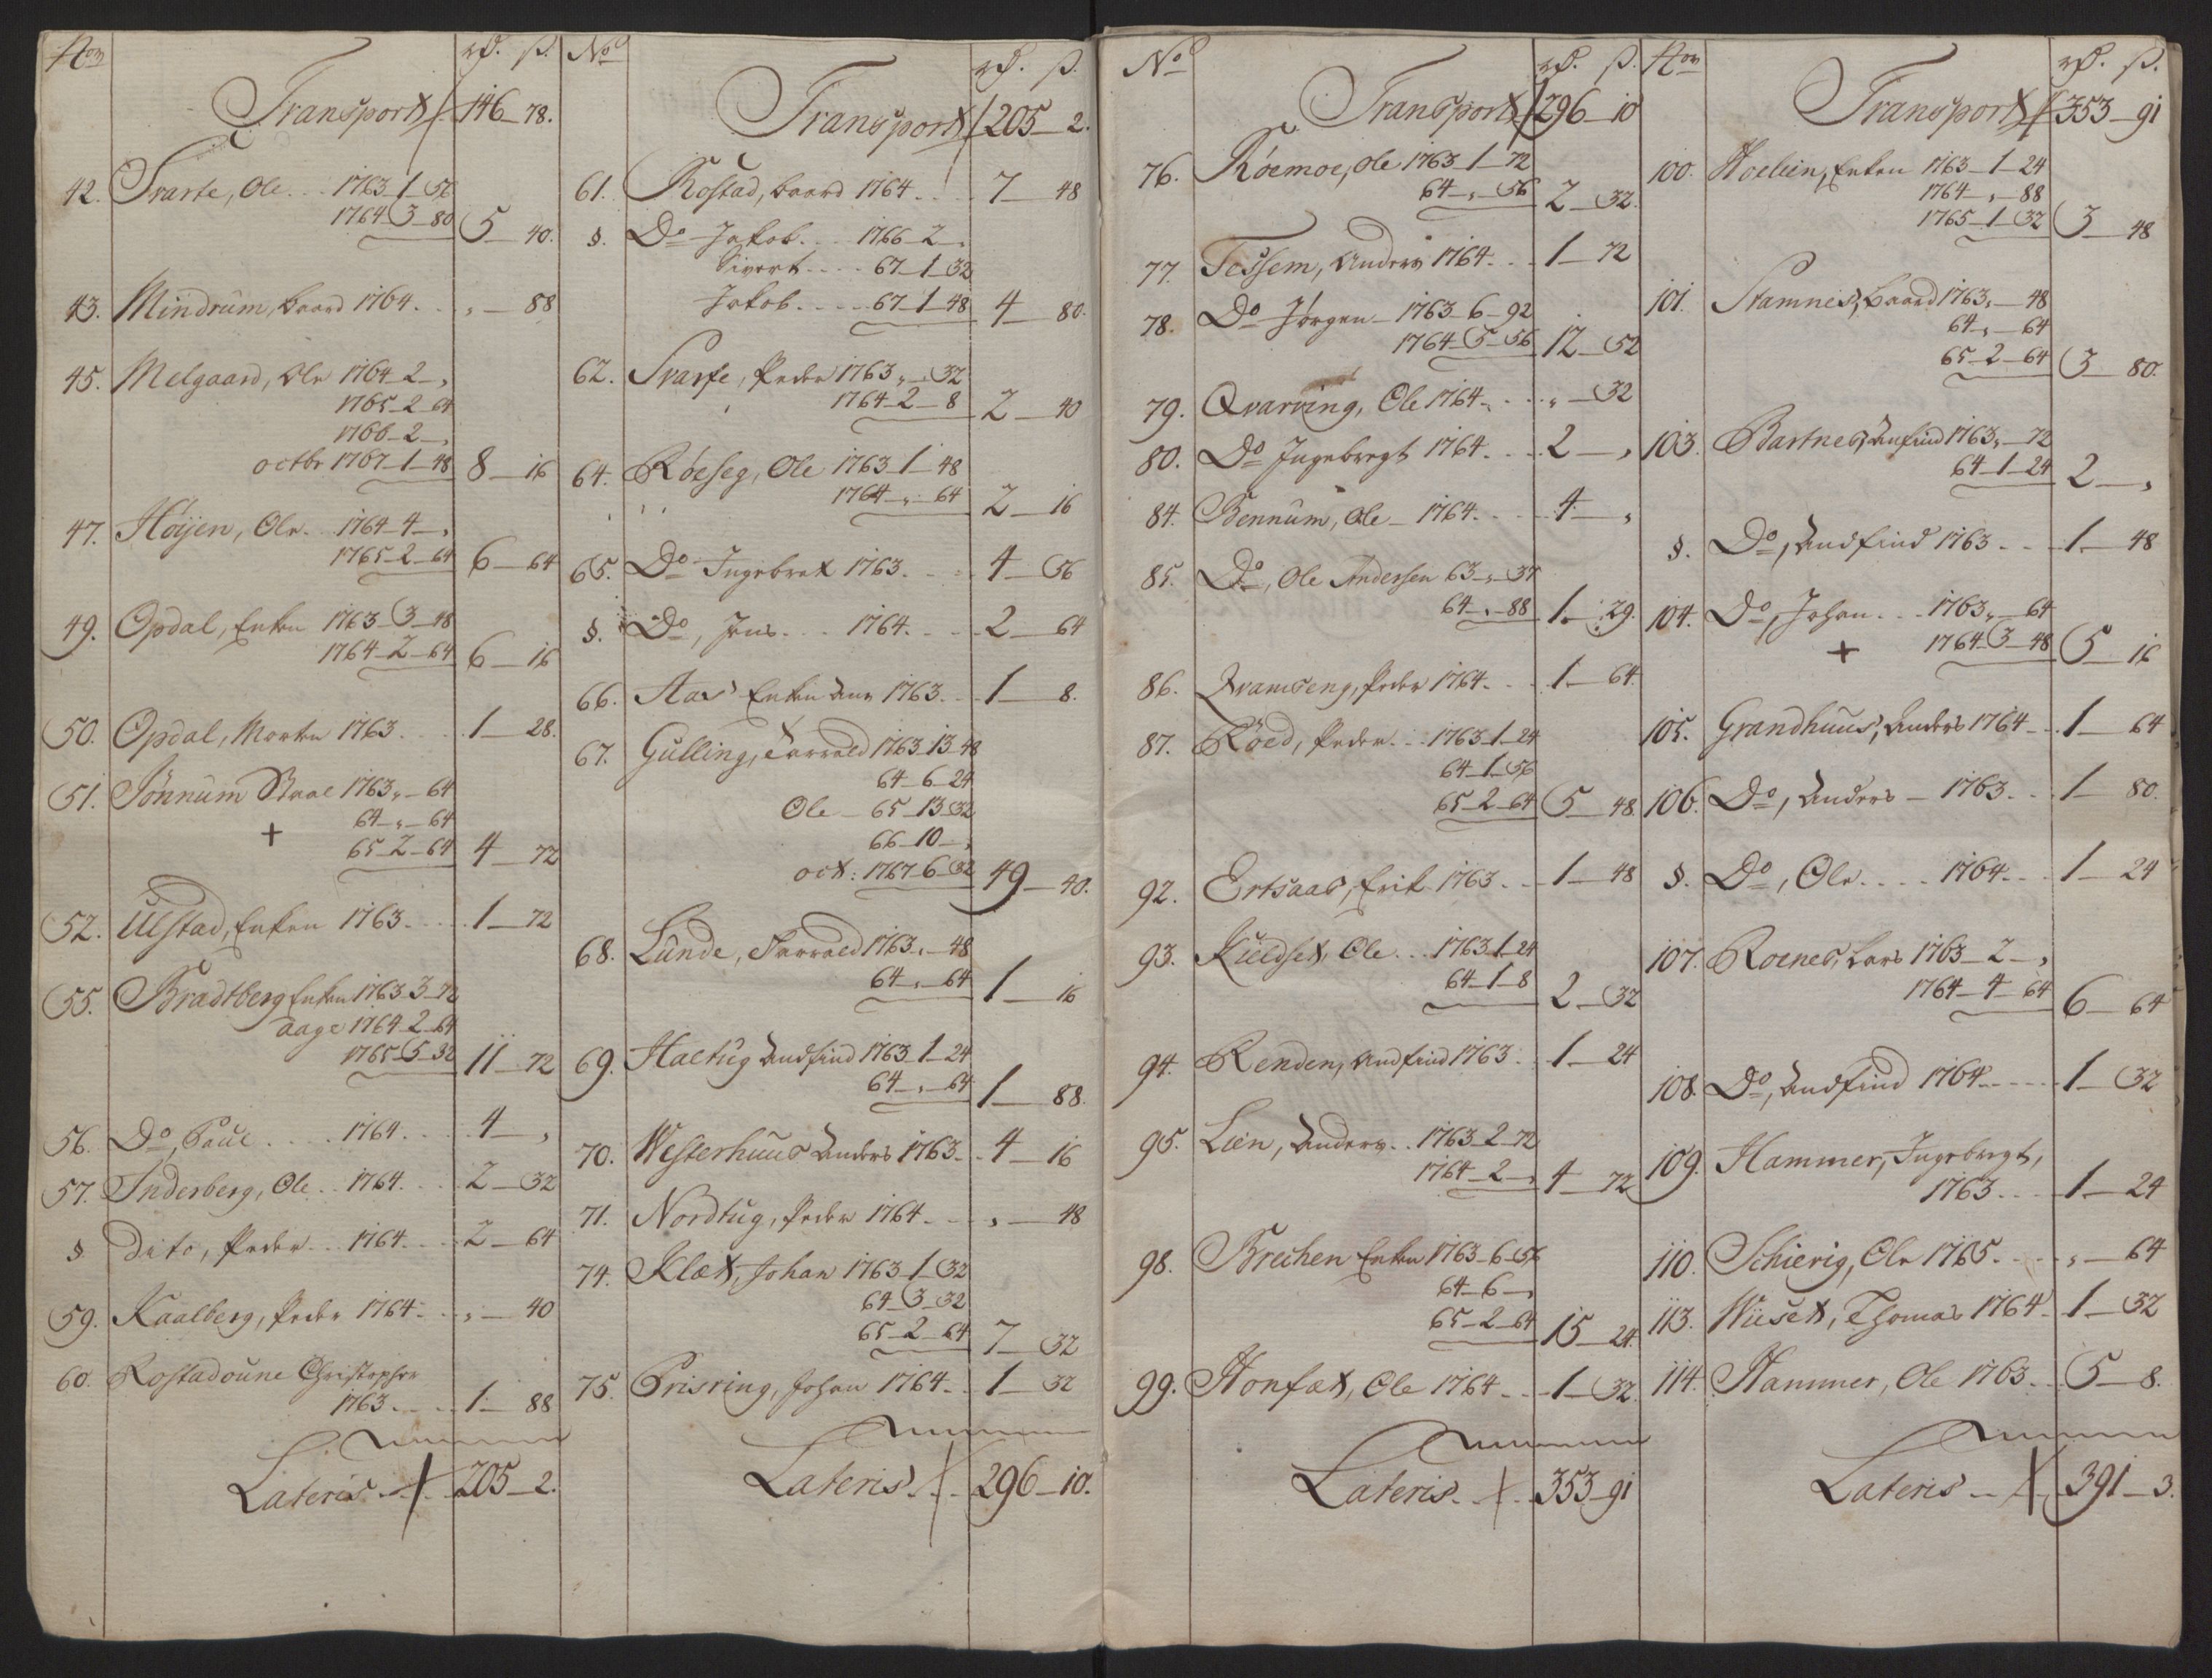 No rd. s.
Transport 146 - 78.
42. Svarte, Ole... 1763 1 56
1764 3 80 5 - 40.
43. Mindrum, Baard 1764... „ - 88
45. Melgaard, Ole 1764 2 - „
1765 - 2 64
1766 - 2 - „
octbr 1767 - 1 - 48 8 - 16
47. Høijen, Ole... 1764 4 - „
1765 - 2 - 64 6 - 64
49. Opdal, Enken 1763 3 - 48
1764 - 2 - 64 6 - 16
50. Opdal, Morten 1763.... 1 - 28.
51. Sønnum 1763 „ - 64
64 - „ - 64
+ 65 - 2 - 64 4 - 72
52. Ulstad, Enken 1763..... 1 - 72
55. Bradtberg Enken 1763 3 - 72
Aage 1764 - 2 - 64
1765 - 5 - 32 11 - 72
56. Do, Paul.... 1764.... 4 - „
57. Inderberg, Ole.. 1764.... 2 - 32
§ dito, Peder... 1764.... 2 - 64
59. Kaalberg, Peder 1764... „ - 40
60. Rostadoune Christopher
1763..... 1 - 88
Lateris.... 205 - 2.

No rd. s.
Transport 205 - 2.
61. Rostad, Baard 1764.... 7 - 48
§. Do Jakob... 1766 - 2 - „
Sivert.... 67 - 1 - 32
Jakob.... 67 - 1 - 48 4 - 80.
62. Svarte, Peder 1763 „ - 32
1764 - 2 - 8 2 - 40
64. Røeseg, Ole 1763 - 1 - 48
1764 - „ - 64 2 - 16
65. Do Ingebret 1763..... 4 - 56
§. Do, Jens... 1764.... 2 - 64
66. Aas Enken 1763.. 1 - 8.
67. Gulling, Torvald 1763 13 - 48
64 - 6 - 24
Ole - 65 - 13 32
66 - 10 - „
oct: 1767 - 6 - 32 49 - 40.
68. Lunde, Torvald 1763 „ - 48
64 - „ - 64 1 - 16
69. Haltug Andfind 1763 - 1 - 24
64 - „ - 64 1 - 88.
70. Westerhuus Anders 1763.. 4 - 16
71. Nordtug, Peder 1764.... „ - 48
74. Klæt, Johan 1763 - 1 - 32
64 3 - 32
65 - 2 - 64 7 - 32
75. Prisring, Johan 1764.. 1 - 32
Lateris... 296 - 10.

No rd. s.
Transport 296 - 10
76. Røemoe, Ole 1763 - 1 - 72
64 - „ - 56 2 - 32.
77. Tessem, Anders 1764... 1 - 72
78. Do Jørgen - 1763 - 6 - 92
1764 - 5 - 56 12 - 52
79. Qvarving, Ole 1764.... „ - 32
80. Do Ingebregt 1764.... 2 - „
84. Bennum, Ole - 1764.... 4 - „
85. Do, Ole Andersen 63 - „ - 37
64 - „ - 88 1. - 29.
86. Qvamseng, Peder 1764... 1 - 64.
87. Røed, Peder... 1763 - 1 - 24
64 - 1 - 56
65 - 2 - 64 5 - 48.
92. Ertsaas, Erik 1763... 1 - 48
93. Kieldset, Ole... 1763 - 1 - 24
64 - 1 - 8 2 - 32
94. Renden, Andfind 1763.. 1 - 24
95. Lien, Anders.. 1763 - 2 - 72
1764 - 2 - „ 4 - 72
98. Brechen Enken 1763 - 6 - 56
64 - 6 - „
65 - 2 - 64 15 - 24.
99. Honfat, Ole 1764... 1 - 32
Lateris.... 353 - 91

No rd. s.
Transport 353 - 91
100. Hoelien, Enken 1763 - 1 - 24
1764 - „ - 88
1765 - 1 - 32 3 - 48
101. Stamnes, Baard 1763 „ - 48
64 - „ - 64
65 - 2 - 64 3 - 80.
103. Bartnes, Anfind 1763 „ - 72
64 - 1 - 24 2 - „
§. Do, Andfind 1763... 1 - 48
104. Do, Johan... 1763 „ - 64
+ 1764 - 3 - 48 5 - 16
105. Grandhuus, Anders 1764.. 1 - 64
106. Do, Anders - 1763... 1 - 80.
§. Do, Ole.... 1764... 1 - 24
107. Roenes, Lars 1763 - 2 - „
1764 - 4 - 64 6 - 64
108. Do, Andfind 1764..... 1 - 32
109. Hammer, Ingebregt,
1763.... 1 - 24
110. Schierig, Ole 1765.... „ - 64
113. Wiiset, Thomas 1764.. 1 - 32
114. Hammer, Ole 1763... 5 - 8.
Lateris... 391 - 3.